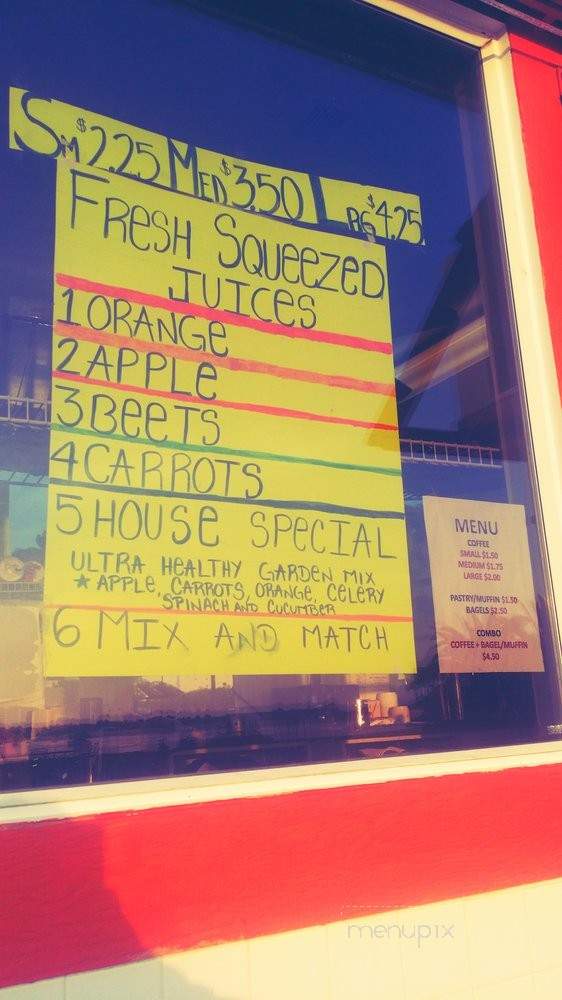 SM $2.25 MED $3.50 LRG $4.25
FRESH SQUEEZED
JUICES
1 ORANGE
2 APPLE
3 BEETS
4 CARROTS
5 HOUSE SPECIAL
ULTRA HEALTHY GARDEN MIX
★ APPLE, CARROTS, ORANGE, CELERY
SPINACH AND CUCUMBER
6 MIX AND MATCH
MENU
COFFEE
SMALL $1.50
MEDIUM $1.75
LARGE $2.00
PASTRY/MUFFIN $1.50
BAGELS $2.50
COMBO
COFFEE + BAGEL/MUFFIN
$4.50
menupix